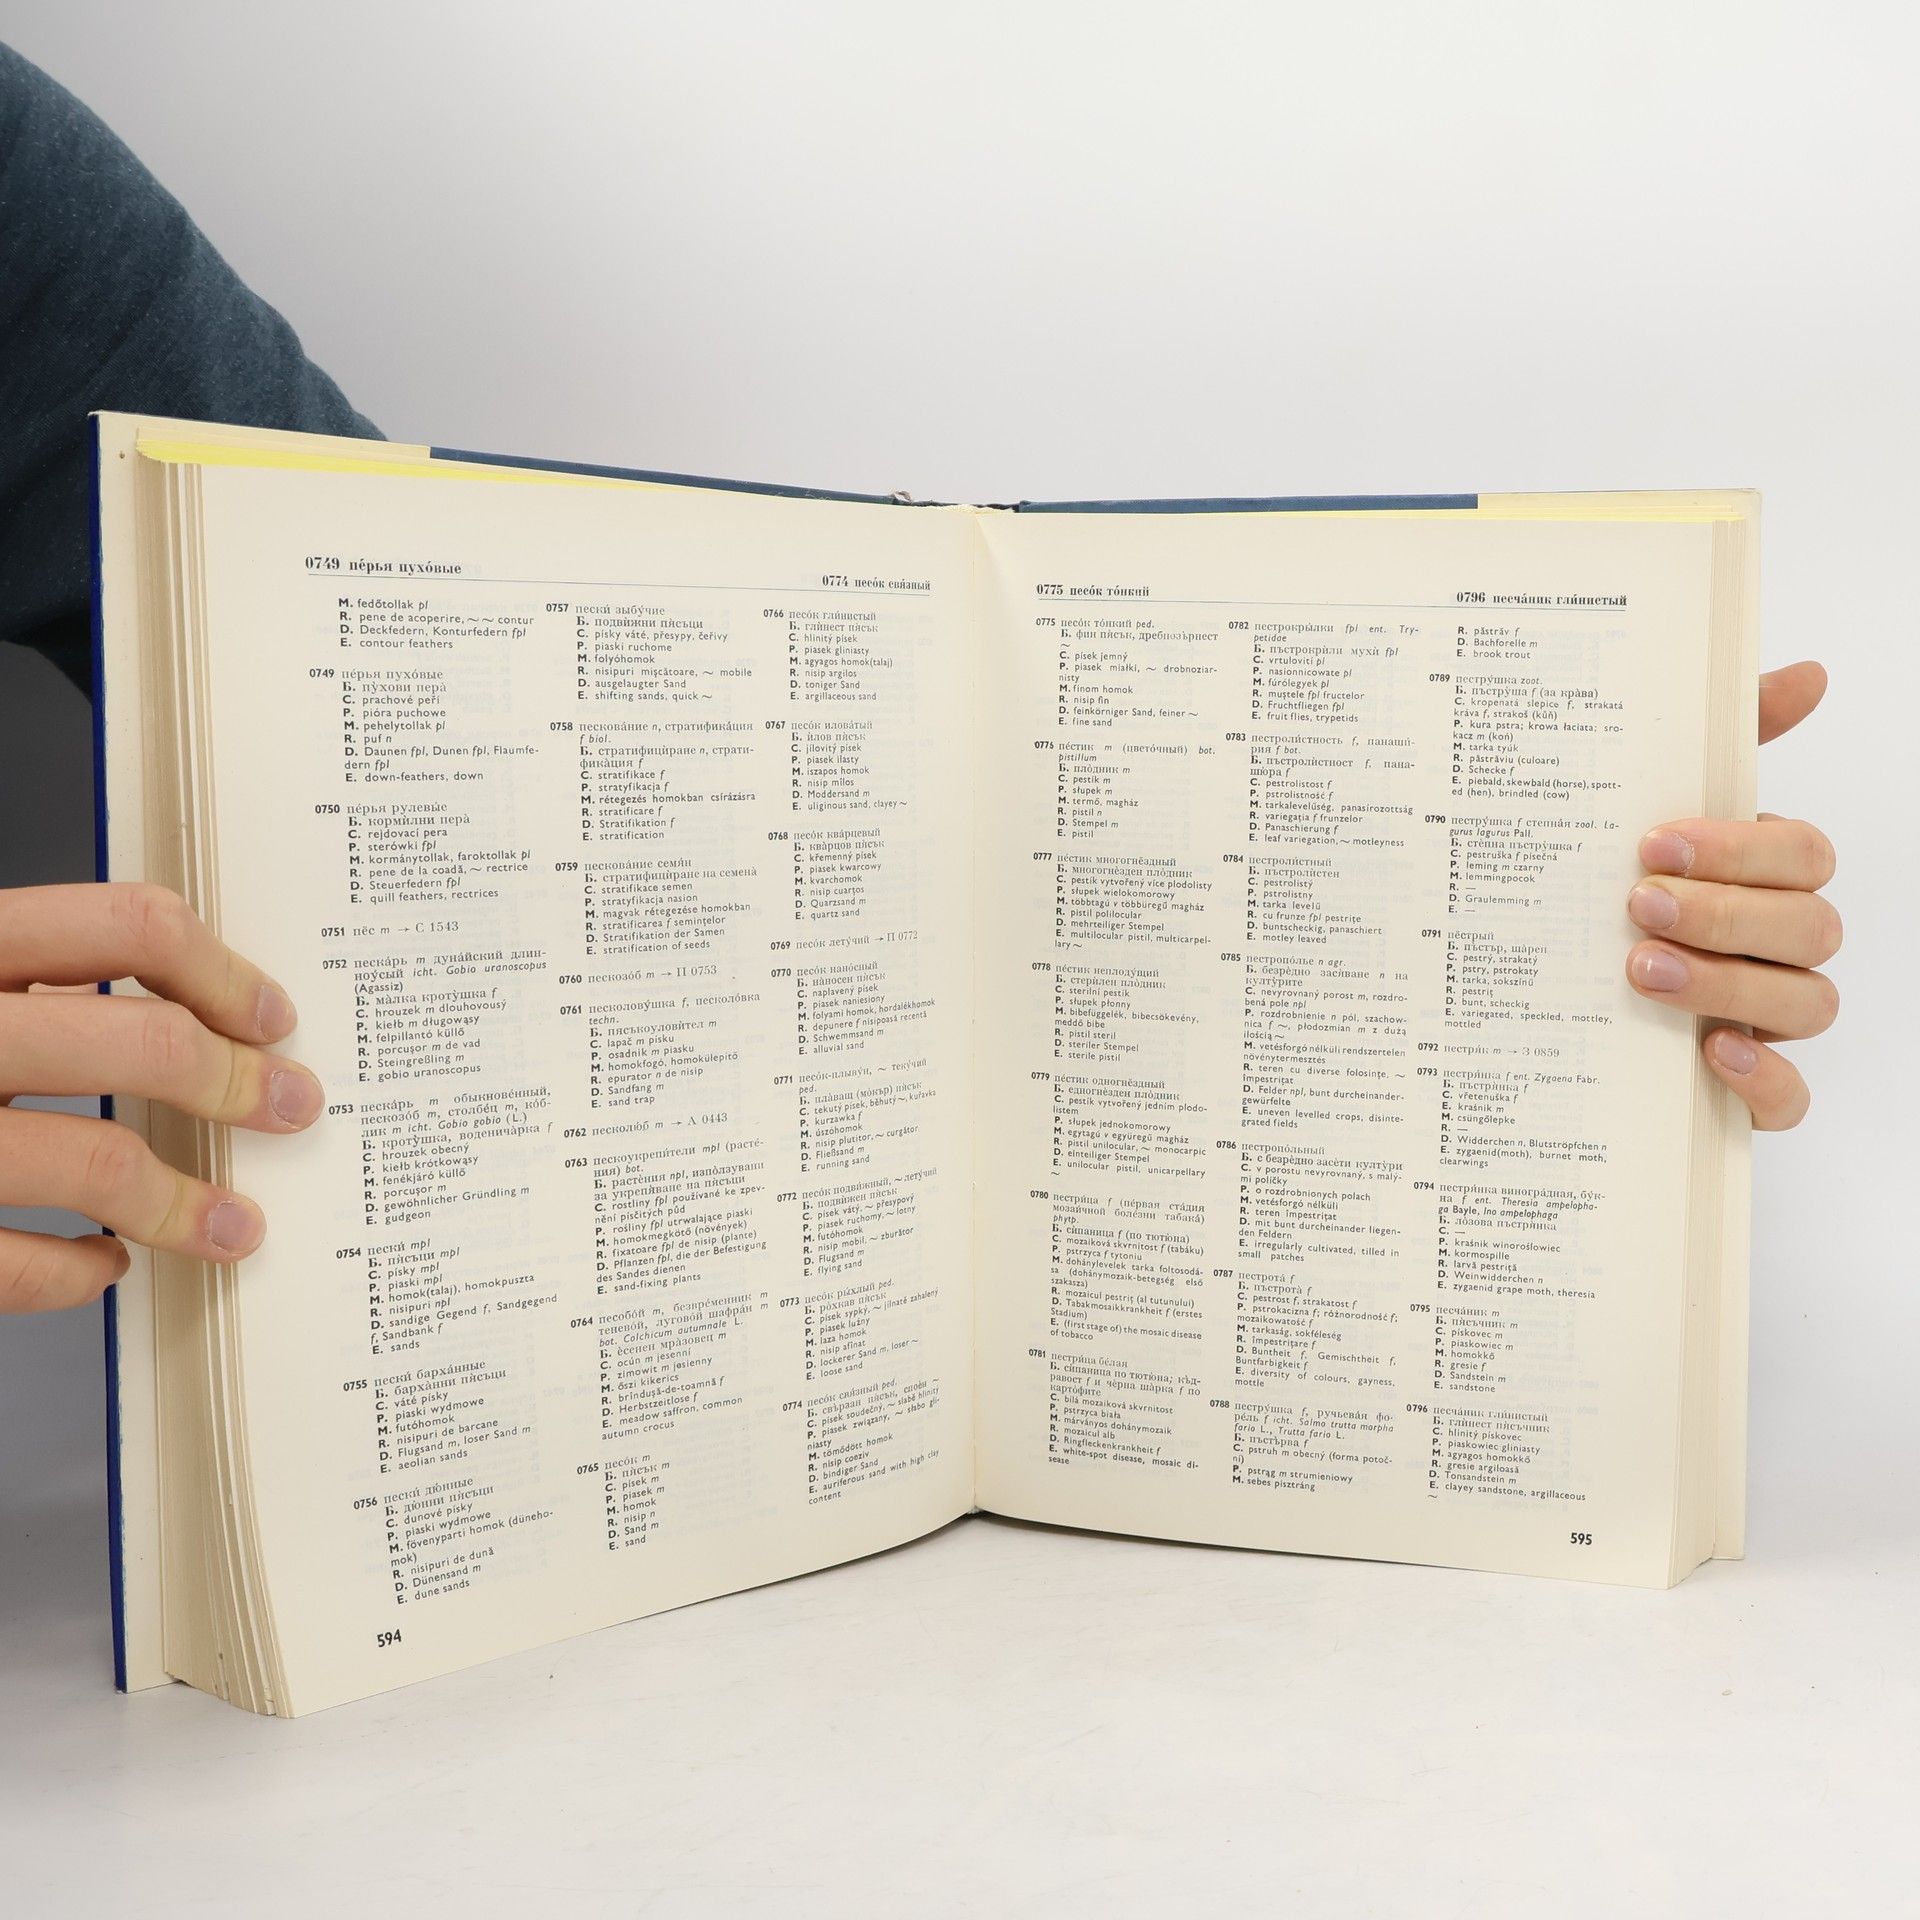 0749 пе́рья пухо́вые
0774 песо́к свя́зный
M. fedőtollak pl
R. pene de acoperire, ~ ~ contur
D. Deckfedern, Konturfedern fpl
E. contour feathers
0749 пе́рья пухо́вые
Б. пу̀хови пера̀
C. prachové peří
P. pióra puchowe
M. pehelytollak pl
R. puf n
D. Daunen fpl, Dunen fpl, Flaumfe-
dern fpl
E. down-feathers, down
0750 пе́рья рулевы́е
Б. корми̂лни пера̀
C. rejdovací pera
P. sterówki fpl
M. kormánytollak, faroktollak pl
R. pene de la coadă, ~ rectrice
D. Steuerfedern fpl
E. quill feathers, rectrices
0751 пёс m → С 1543
0752 песка́рь m дуна́йский длин-
ноу́сый icht. Gobio uranoscopus
(Agassiz)
Б. ма̀лка кроту̀шка f
C. hrouzek m dlouhovousý
P. kiełb m długowąsy
M. felpillantó küllő
R. porcuşor m de vad
D. Steingreßling m
E. gobio uranoscopus
0753 песка́рь m обыкнове́нный,
пескозо́б m, столбе́ц m, ко́б-
лик m icht. Gobio gobio (L.)
Б. кроту̀шка, водeнича̀рка f
C. hrouzek obecný
P. kiełb krótkowąsy
M. fenékjáró küllő
R. porcuşor m
D. gewöhnlicher Gründling m
E. gudgeon
0754 пески́ mpl
Б. пя̀съци mpl
C. písky mpl
P. piaski mpl
M. homok(talaj), homokpuszta
R. nisipuri npl
D. sandige Gegend f, Sandgegend
f, Sandbank f
E. sands
0755 пески́ барха́нные
Б. барха̀нни пя̀съци
C. váté písky
P. piaski wydmowe
M. futóhomok
R. nisipuri de barcane
D. Flugsand m, loser Sand m
E. aeolian sands
0756 пески́ дю́нные
Б. дю̀нни пя̀съци
C. dunové písky
P. piaski wydmowe
M. fövenyparti homok (düneho-
mok)
R. nisipuri de dună
D. Dünensand m
E. dune sands
594
0757 пески́ зыбу́чие
Б. подви̂жни пя̀съци
C. písky váté, přesypy, čeřivy
P. piaski ruchome
M. folyóhomok
R. nisipuri mişcătoare, ~ mobile
D. ausgelaugter Sand
E. shifting sands, quick ~
0758 пескова́ние n, стратифика́ция
f biol.
Б. стратифици̂ране n, страти-
фика̀ция f
C. stratifikace f
P. stratyfikacja f
M. rétegezés homokban csírázásra
R. stratificare f
D. Stratifikation f
E. stratification
0759 пескова́ние семя́н
Б. стратифици̂ране на семена̀
C. stratifikace semen
P. stratyfikacja nasion
M. magvak rétegezése homokban
R. stratificarea f seminţelor
D. Stratifikation der Samen
E. stratification of seeds
0760 пескозо́б m → П 0753
0761 песколову́шка f, песколо́вка
techn.
Б. пясъкоулови̂тел m
C. lapač m písku
P. osadnik m piasku
M. homokfogó, homokülepítő
R. epurator n de nisip
D. Sandfang m
E. sand trap
0762 песколю́б m → А 0443
0763 пескоукрепи́тели mpl (расте́-
ния) bot.
Б. растѐния npl, изпо̀лзувани
за укрепя̀ване на пя̀съци
C. rostliny fpl používané ke zpev-
nění písčitých půd
P. rośliny fpl utrwalające piaski
M. homokmegkötő (növények)
R. fixatoare fpl de nisip (plante)
D. Pflanzen fpl, die der Befestigung
des Sandes dienen
E. sand-fixing plants
0764 песобо́й m, безвре́менник m
тенево́й, лугово́й шафра́н m
bot. Colchicum autumnale L.
Б. ѐсенен мра̀зовец m
C. ocún m jesenní
P. zimowit m jesienny
M. őszi kikerics
R. brînduşă-de-toamnă f
D. Herbstzeitlose f
E. meadow saffron, common
autumn crocus
0765 песо́к m
Б. пя̀сък m
C. písek m
P. piasek m
M. homok
R. nisip n
D. Sand m
E. sand
0766 песо́к гли́нистый
Б. гли̂нест пя̀сък
C. hlinitý písek
P. piasek gliniasty
M. agyagos homok(talaj)
R. nisip argilos
D. toniger Sand
E. argillaceous sand
0767 песо́к илова́тый
Б. и̂лов пя̀сък
C. jílovitý písek
P. piasek ilasty
M. iszapos homok
R. nisip mîlos
D. Moddersand m
E. uliginous sand, clayey ~
0768 песо́к ква́рцевый
Б. ква̀рцов пя̀сък
C. křemenný písek
P. piasek kwarcowy
M. kvarchomok
R. nisip cuarţos
D. Quarzsand m
E. quartz sand
0769 песо́к лету́чий → П 0772
0770 песо́к нано́сный
Б. на̀носен пя̀сък
C. naplavený písek
P. piasek naniesiony
M. folyami homok, hordalékhomok
R. depunere f nisipoasă recentă
D. Schwemmsand m
E. alluvial sand
0771 песо́к-плыву́н, ~ теку́чий
ped.
Б. пла̀ващ (мо̀кър) пя̀сък
C. tekutý písek, běhutý ~, kuřavka
P. kurzawka f
M. úszóhomok
R. nisip plutitor, ~ curgător
D. Fließsand m
E. running sand
0772 песо́к подви́жный, ~ лету́чий
Б. подви̂жен пя̀сък
C. písek vátý, ~ přesypový
P. piasek ruchomy, ~ lotny
M. futóhomok
R. nisip mobil, ~ zburător
D. Flugsand m
E. flying sand
0773 песо́к ры́хлый ped.
Б. ро̀хкав пя̀сък
C. písek sypký, ~ jílnatě zahalený
P. piasek luźny
M. laza homok
R. nisip afînat
D. lockerer Sand m, loser ~
E. loose sand
0774 песо́к свя́зный ped.
Б. свъ̀рзан пя̀сък, спо̀ен ~
C. písek soudečný, ~ slabě hlinitý
P. piasek związany, ~ słabo gli-
niasty
M. tömődött homok
R. nisip coeziv
D. bindiger Sand
E. auriferous sand with high clay
content
0775 песо́к то́нкий
0796 песча́ник гли́нистый
0775 песо́к то́нкий ped.
Б. фин пя̀сък, дребнозъ̀рнест
~
C. písek jemný
P. piasek miałki, ~ drobnoziar-
nisty
M. finom homok
R. nisip fin
D. feinkörniger Sand, feiner ~
E. fine sand
0776 пе́стик m (цвето́чный) bot.
pistillum
Б. пло̀дник m
C. pestík m
P. słupek m
M. termő, magház
R. pistil n
D. Stempel m
E. pistil
0777 пе́стик многогнёздный
Б. многогнѐзден пло̀дник
C. pestík vytvořený více plodolisty
P. słupek wielokomorowy
M. többtagú v többüregű magház
R. pistil polilocular
D. mehrteiliger Stempel
E. multilocular pistil, multicarpel-
lary ~
0778 пе́стик неплоду́щий
Б. стери̂лен пло̀дник
C. sterilní pestík
P. słupek płonny
M. bibefüggelék, bibecsökevény,
meddő bibe
R. pistil steril
D. steriler Stempel
E. sterile pistil
0779 пе́стик одногнёздный
Б. едногнѐзден пло̀дник
C. pestík vytvořený jedním plodo-
listem
P. słupek jednokomorowy
M. egytagú v együregű magház
R. pistil unilocular, ~ monocarpic
D. einteiliger Stempel
E. unilocular pistil, unicarpellary
~
0780 пестри́ца f (пе́рвая ста́дия
моза́ичной боле́зни табака́)
phytp.
Б. си̂паница f (по тютю̀на)
C. mozaiková skvrnitost f (tabáku)
P. pstrzyca f tytoniu
M. dohánylevelek tarka foltosodá-
sa (dohánymozaik-betegség első
szakasza)
R. mozaicul pestriţ (al tutunului)
D. Tabakmosaikkrankheit f (erstes
Stadium)
E. (first stage of) the mosaic disease
of tobacco
0781 пестри́ца бе́лая
Б. си̂паница по тютю̀на; къ̀д-
равост f и чѐрна ша̀рка f по
карто̀фите
C. bílá mozaiková skvrnitost
P. pstrzyca biała
M. márványos dohánymozaik
R. mozaicul alb
D. Ringfleckenkrankheit f
E. white-spot disease, mosaic di-
sease
0782 пестрокры́лки fpl ent. Try-
petidae
Б. пъстрокри̂ли мухи̂ fpl
C. vrtulovití pl
P. nasionnicowate pl
M. fúrólegyek pl
R. muştele fpl fructelor
D. Fruchtfliegen fpl
E. fruit flies, trypetids
0783 пестроли́стность f, панаши́-
рия f bot.
Б. пъстроли̂стност f, пана-
шю̀ра f
C. pestrolistost f
P. pstrolistność f
M. tarkalevelűség, panasírozottság
R. variegaţia f frunzelor
D. Panaschierung f
E. leaf variegation, ~ motleyness
0784 пестроли́стный
Б. пъстроли̂стен
C. pestrolistý
P. pstrolistny
M. tarka levelű
R. cu frunze fpl pestriţe
D. buntscheckig, panaschiert
E. motley leaved
0785 пестропо́лье n agr.
Б. безрѐдно зася̀ване n на
култу̀рите
C. nevyrovnaný porost m, rozdro-
bená pole npl
P. rozdrobnienie n pól, szachow-
nica f ~, płodozmian m z dużą
ilością ~
M. vetésforgó nélküli rendszertelen
növénytermesztés
R. teren cu diverse folosinţe, ~
împestriţat
D. Felder npl, bunt durcheinander-
gewürfelte
E. uneven levelled crops, disinte-
grated fields
0786 пестропо́льный
Б. с безрѐдно засѐти култу̀ри
C. v porostu nevyrovnaný, s malý-
mi políčky
P. o rozdrobnionych polach
M. vetésforgó nélküli
R. teren împestriţat
D. mit bunt durcheinander liegen-
den Feldern
E. irregularly cultivated, tilled in
small patches
0787 пестрота́ f
Б. пъстрота̀ f
C. pestrost f, strakatost f
P. pstrokacizna f; różnorodność f;
mozaikowatość f
M. tarkaság, sokféleség
R. împestriţare f
D. Buntheit f, Gemischtheit f,
Buntfarbigkeit f
E. diversity of colours, gayness,
mottle
0788 пестру́шка f, ручьева́я фо-
ре́ль f icht. Salmo trutta morpha
fario L., Trutta fario L.
Б. пъстъ̀рва f
C. pstruh m obecný (forma potoč-
ní)
P. pstrąg m strumieniowy
M. sebes pisztráng
R. păstrăv f
D. Bachforelle m
E. brook trout
0789 пестру́шка zoot.
Б. пъстру̀ша f (за кра̀ва)
C. kropenatá slepice f, strakatá
kráva f, strakoš (kůň)
P. kura pstra; krowa łaciata; sro-
kacz m (koń)
M. tarka tyúk
R. păstrăviu (culoare)
D. Schecke f
E. piebald, skewbald (horse), spott-
ed (hen), brindled (cow)
0790 пестру́шка f степна́я zool. La-
gurus lagurus Pall.
Б. стѐпна пъстру̀шка f
C. pestruška f písečná
P. leming m czarny
M. lemmingpocok
R. —
D. Graulemming m
E. —
0791 пёстрый
Б. пъ̀стър, ша̀рен
C. pestrý, strakatý
P. pstry, pstrokaty
M. tarka, sokszínű
R. pestriţ
D. bunt, scheckig
E. variegated, speckled, mottley,
mottled
0792 пестря́к m → З 0859
0793 пестря́нка f ent. Zygaena Fabr.
Б. пъстря̀нка f
C. vřetenuška f
P. kraśnik m
M. csüngőlepke
R. —
D. Widderchen n, Blutströpfchen n
E. zygaenid(moth), burnet moth,
clearwings
0794 пестря́нка виногра́дная, бу́к-
на f ent. Theresia ampelopha-
ga Bayle, Ino ampelophaga
Б. ло̀зова пъстря̀нка
C. —
P. kraśnik winoroślowiec
M. kormospille
R. larvă pestriţă
D. Weinwidderchen n
E. zygaenid grape moth, theresia
0795 песча́ник m
Б. пя̀съчник m
C. pískovec m
P. piaskowiec m
M. homokkő
R. gresie f
D. Sandstein m
E. sandstone
0796 песча́ник гли́нистый
Б. гли̂нест пя̀съчник
C. hlinitý pískovec
P. piaskowiec gliniasty
M. agyagos homokkő
R. gresie argiloasă
D. Tonsandstein m
E. clayey sandstone, argillaceous
~
595